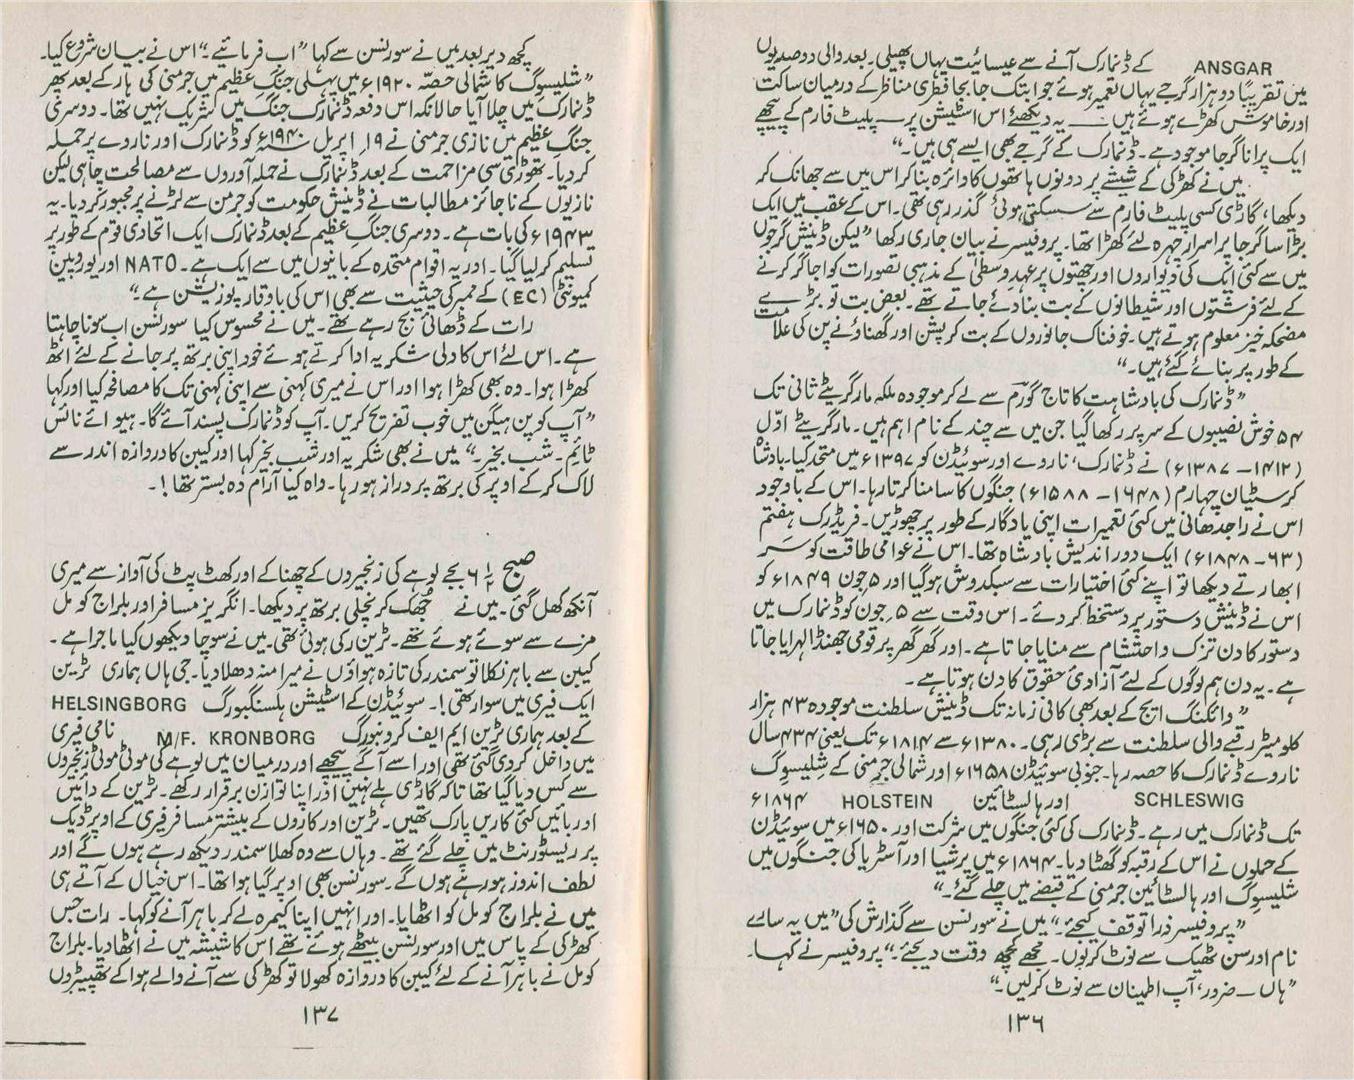 ANSGAR کے ڈنمارک آنے سے عیسائیت یہاں پھیلی۔ بعد والی دو صدیوں
میں تقریباً دو ہزار گرجے یہاں تعمیر ہوئے جو اب تک جا بجا فطری مناظر کے درمیان ساکت
اور خاموش کھڑے ہوئے ہیں ـــــ یہ دیکھئے اس اسٹیشن پر ـــ پلیٹ فارم کے پیچھے
ایک پرانا گرجا موجود ہے۔ ڈنمارک کے گرجے بھی ایسے ہی ہیں۔“
میں نے کھڑکی کے شیشے پر دونوں ہاتھوں کا دائرہ بنا کر اس میں سے جھانک کر
دیکھا، گاڑی کسی پلیٹ فارم سے سسکتی ہوئی گذر رہی تھی۔ اس کے عقب میں ایک
بڑا سا گرجا پر اسرار چہرہ لئے کھڑا تھا۔ پروفیسر نے بیان جاری رکھا ”لیکن ڈینش گرجوں
میں سے کئی ایک کی دیواروں اور چھتوں پر عہد وسطیٰ کے مذہبی تصورات کو اجاگر کرنے
کے لئے فرشتوں اور شیطانوں کے بت بنا دئے جاتے تھے۔ بعض بت تو بڑے
مضحکہ خیز معلوم ہوتے ہیں۔ خوفناک جانوروں کے بت کرپشن اور گھناؤنے پن کی علامت
کے طور پر بنائے گئے ہیں۔“
”ڈنمارک کی بادشاہت کا تاج گورم سے لے کر موجودہ ملکہ مارگریٹے ثانی تک
۵۴ خوش نصیبوں کے سر پر رکھا گیا جن میں سے چند کے نام اہم ہیں۔ مارگریٹے اوّل
(۱۴۱۲ – ۱۳۸۷ء) نے ڈنمارک، ناروے اور سوئیڈن کو ۱۳۹۷ء میں متحد کیا۔ بادشاہ
کرسٹیان چہارم (۱۶۴۸ – ۱۵۸۸ء) جنگوں کا سامنا کرتا رہا۔ اس کے باوجود
اس نے راجدھانی میں کئی تعمیرات اپنی یادگار کے طور پر چھوڑیں۔ فریڈرک ہفتم
(۶۳ – ۱۸۴۸ء) ایک دور اندیش بادشاہ تھا۔ اس نے عوامی طاقت کو سر
ابھارتے دیکھا تو اپنے کئی اختیارات سے سبکدوش ہو گیا اور ۵ جون ۱۸۴۹ء کو
اس نے ڈینش دستور پر دستخط کر دئے۔ اس وقت سے ۵ جون کو ڈنمارک میں
دستور کا دن تزک و احتشام سے منایا جاتا ہے۔ اور گھر گھر پر قومی جھنڈا لہرایا جاتا
ہے۔ یہ دن ہم لوگوں کے لئے آزادئ حقوق کا دن ہوتا ہے۔
”وائکنگ ایج کے بعد بھی کافی زمانہ تک ڈینش سلطنت موجودہ ۴۳ ہزار
کلو میٹر رقبے والی سلطنت سے بڑی رہی۔ ۱۳۸۰ء سے ۱۸۱۴ء تک یعنی ۴۳۴ سال
ناروے ڈنمارک کا حصہ رہا۔ جنوبی سوئیڈن ۱۶۵۸ء اور شمالی جرمنی کے شلیسوِگ
SCHLESWIG اور ہالسٹائین HOLSTEIN ۱۸۶۴ء
تک ڈنمارک میں رہے۔ ڈنمارک کی کئی جنگوں میں شرکت اور ۱۶۵۰ء میں سوئیڈن
کے حملوں نے اس کے رقبہ کو گھٹا دیا۔ ۱۸۶۴ء میں پرشیا اور آسٹریا کی جنگوں میں
شلیسوِگ اور ہالسٹائین جرمنی کے قبضے میں چلے گئے۔“
”پروفیسر ذرا توقف کیجئے۔“ میں نے سورنسن سے گذارش کی ”میں یہ سارے
نام اور سن ٹھیک سے نوٹ کر لوں۔ مجھے کچھ وقت دیجئے۔“ پروفیسر نے کہا۔
”ہاں ـــ ضرور، آپ اطمینان سے نوٹ کر لیں۔“
۱۳۶
کچھ دیر بعد میں نے سورنسن سے کہا ”اب فرمائیے۔“ اس نے بیان شروع کیا۔
”شلیسوِگ کا شمالی حصّہ ۱۹۲۰ء میں پہلی جنگِ عظیم میں جرمنی کی ہار کے بعد پھر
ڈنمارک میں چلا آیا حالانکہ اس دفعہ ڈنمارک جنگ میں شریک نہیں تھا۔ دوسری
جنگِ عظیم میں نازی جرمنی نے ۹ اپریل ۱۹۴۰ء کو ڈنمارک اور ناروے پر حملہ
کر دیا۔ تھوڑی سی مزاحمت کے بعد ڈنمارک نے حملہ آوروں سے مصالحت چاہی لیکن
نازیوں کے ناجائز مطالبات نے ڈینش حکومت کو جرمن سے لڑنے پر مجبور کر دیا۔ یہ
۱۹۴۳ء کی بات ہے۔ دوسری جنگِ عظیم کے بعد ڈنمارک ایک اتحادی قوم کے طور پر
تسلیم کر لیا گیا۔ اور یہ اقوام متحدہ کے بانیوں میں سے ایک ہے۔ NATO اور یوروپین
کمیونٹی (EC) کے ممبر کی حیثیت سے بھی اس کی باوقار پوزیشن ہے۔“
رات کے ڈھائی بج رہے تھے۔ میں نے محسوس کیا سورنسن اب سونا چاہتا
ہے۔ اس لئے اس کا دلی شکریہ ادا کرتے ہوئے خود اپنی برتھ پر جانے کے لئے اٹھ
کھڑا ہوا۔ وہ بھی کھڑا ہوا اور اس نے میری کہنی سے اپنی کہنی تک کا مصافحہ کیا اور کہا
”آپ کوپن ہیگن میں خوب تفریح کریں۔ آپ کو ڈنمارک پسند آئے گا۔ ہیو اے نائس
ٹائیم۔ شب بخیر۔“ میں نے بھی شکریہ اور شب بخیر کہا اور کیبن کا دروازہ اندر سے
لاک کر کے اوپر کی برتھ پر دراز ہو رہا۔ واہ کیا آرام دہ بستر تھا!۔
صبح ۶½ بجے لوہے کی زنجیروں کے چھناکے اور کھٹ پٹ کی آواز سے میری
آنکھ کھل گئی۔ میں نے جُھک کر نچلی برتھ پر دیکھا۔ انگریز مسافر اور بلراج کومل
مزے سے سوئے ہوئے تھے۔ ٹرین رکی ہوئی تھی۔ میں نے سوچا دیکھوں کیا ماجرا ہے۔
کیبن سے باہر نکلا تو سمندر کی تازہ ہواؤں نے میرا منہ دھلا دیا۔ جی ہاں ہماری ٹرین
ایک فیری میں سوار تھی!۔ سوئیڈن کے اسٹیشن ہلسنگبورگ HELSINGBORG
کے بعد ہماری ٹرین ایم ایف کرونبورگ M/F. KRONBORG نامی فیری
میں داخل کر دی گئی تھی اور اسے آگے پیچھے اور درمیان میں لوہے کی موٹی موٹی زنجیروں
سے کس دیا گیا تھا تاکہ گاڑی ہلے نہیں اور اپنا توازن برقرار رکھے۔ ٹرین کے دائیں
اور بائیں کئی کاریں پارک تھیں۔ ٹرین اور کاروں کے بیشتر مسافر فیری کے اوپر ڈیک
پر ریسٹورنٹ میں چلے گئے تھے۔ وہاں سے وہ کھلا سمندر دیکھ رہے ہوں گے اور
لطف اندوز ہو رہے ہوں گے۔ سورنسن بھی اوپر گیا ہوا تھا۔ اس خیال کے آتے ہی
میں نے بلراج کومل کو اٹھایا۔ اور انہیں اپنا کیمرہ لے کر باہر آنے کو کہا۔ رات جس
کھڑکی کے پاس میں اور سورنسن بیٹھے ہوئے تھے اس کا شیشہ میں نے اٹھا دیا۔ بلراج
کومل نے باہر آنے کے لئے کیبن کا دروازہ کھولا تو کھڑکی سے آنے والے ہوا کے تھپیڑوں
۱۳۷